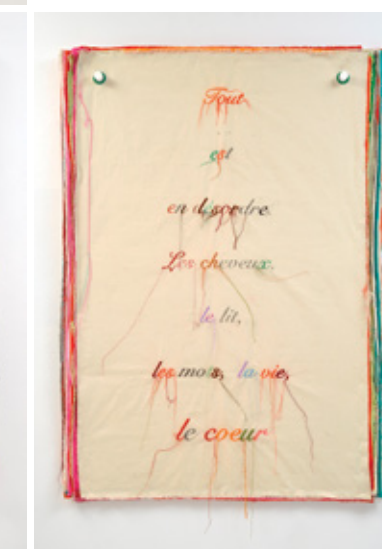 Tout
est
en désordre.
Les cheveux.
le lit,
les mots, la vie,
le coeur